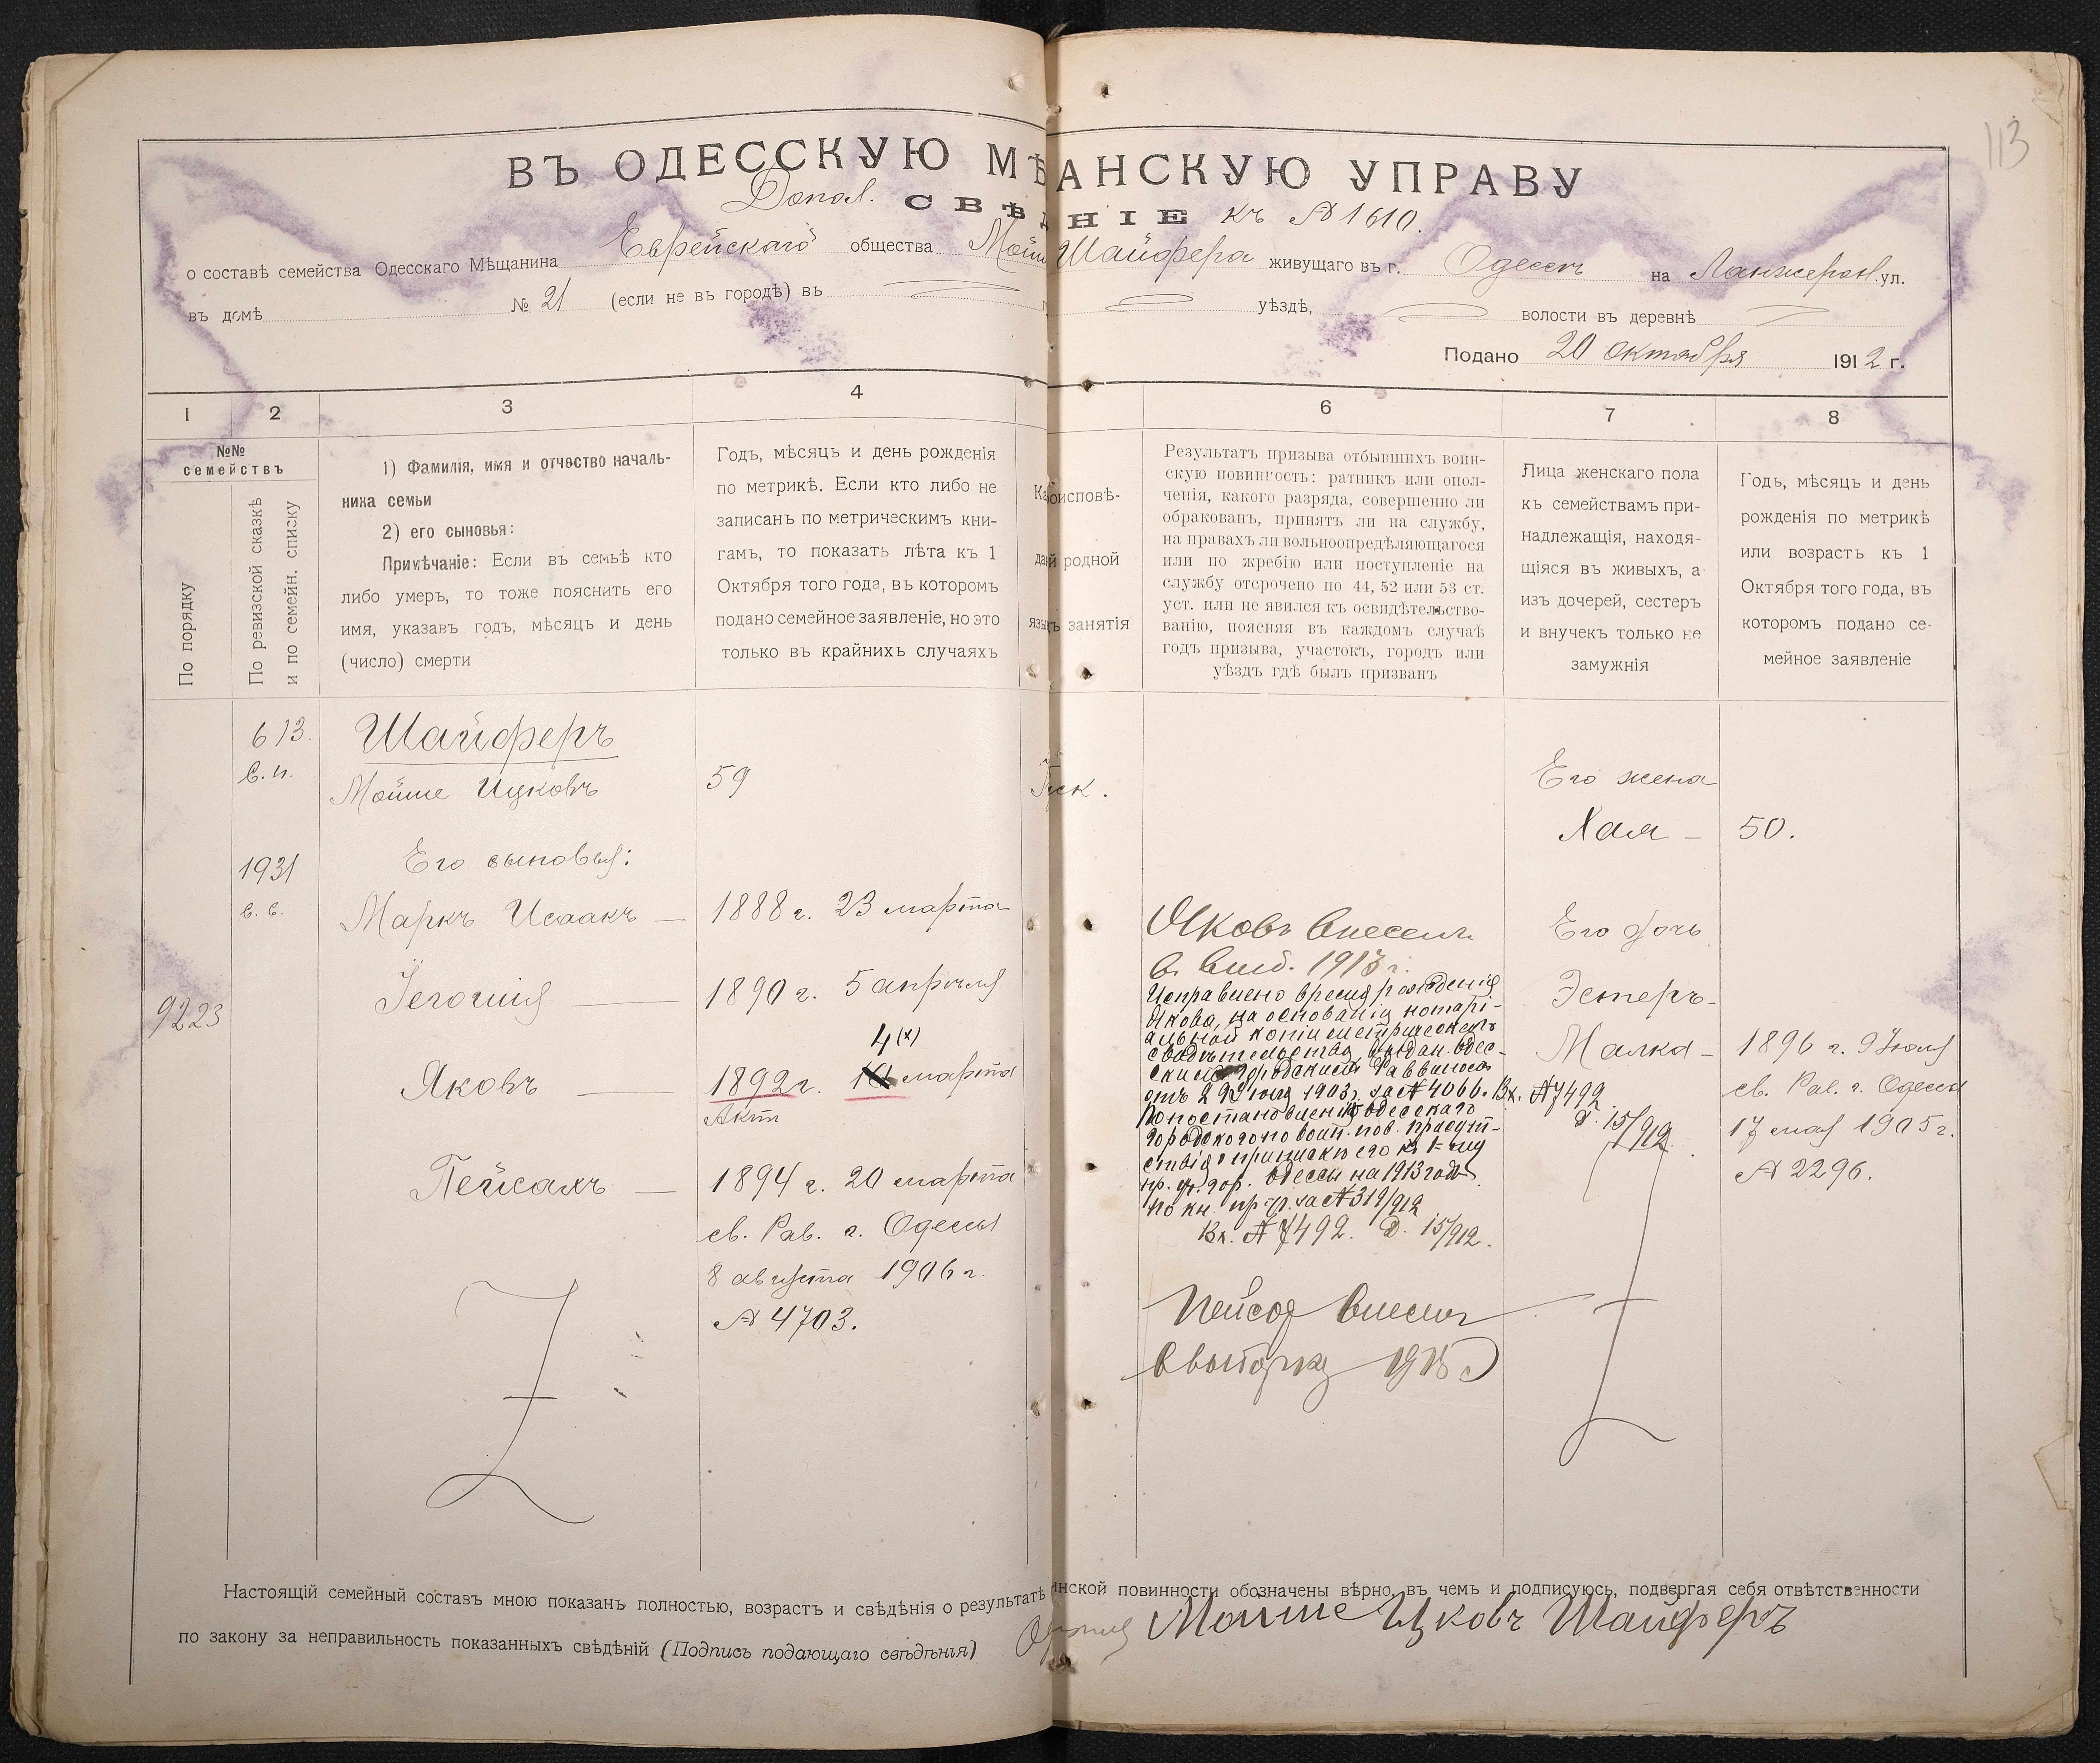 113
ВЪ ОДЕССКУЮ МѢ АНСКУЮ УПРАВУ
Допол. СВѢД НІЕ къ № 1610.
о составѣ семейства Одесскаго Мѣщанина Еврейскаго общества Мойш Шайфера живущаго въ г. Одессѣ на Ланжерон. ул.
въ домѣ № 21 (если не въ городѣ) въ уѣздѣ, волости въ деревнѣ
Подано 20 октября 1912 г.
1 2 3 4 6 7 8
№№
семействъ
По порядку
По ревизской сказкѣ
и по семейн. списку
1) Фамилія, имя и отчество началь-
ника семьи
2) его сыновья:
Примѣчаніе: Если въ семьѣ кто
либо умеръ, то тоже пояснить его
имя, указавъ годъ, мѣсяцъ и день
(число) смерти
Годъ, мѣсяцъ и день рожденія
по метрикѣ. Если кто либо не
записанъ по метрическимъ кни-
гамъ, то показать лѣта къ 1
Октября того года, въ которомъ
подано семейное заявленіе, но это
только въ крайнихъ случаяхъ
Ка оисповѣ-
да й родной
язы ъ занятія
Результатъ призыва отбывшихъ воин-
скую повинность: ратникъ или опол-
ченія, какого разряда, совершенно ли
обракованъ, принятъ ли на службу,
на правахъ ли вольноопредѣляющагося
или по жребію или поступленіе на
службу отсрочено по 44, 52 или 53 ст.
уст. или не явился къ освидѣтельство-
ванію, поясняя въ каждомъ случаѣ
годъ призыва, участокъ, городъ или
уѣздъ гдѣ былъ призванъ
Лица женскаго пола
къ семействамъ при-
надлежащія, находя-
щіяся въ живыхъ, а
изъ дочерей, сестеръ
и внучекъ только не
замужнія
Годъ, мѣсяцъ и день
рожденія по метрикѣ
или возрастъ къ 1
Октября того года, въ
которомъ подано се-
мейное заявленіе
613.
Шайферъ
Мойше Ицковъ 59
Его жена
Хая - 50.
1931
Его сыновья:
Маркъ Исаакъ — 1888 г. 23 марта
Іегошія — 1890 г. 5 апрѣля
9223
4 (х)
Яковъ — 1892 г. 10 марта
Актъ
Пейсахъ — 1894 г. 20 марта
св. Рав. г. Одессы
8 августа 1906 г.
№ 4703.
Яковъ внесенъ
в выб. 1913 г.
Исправлено время рожденія
Якова, на основаніи нотарі-
альной копіи метрическаго
свидѣтельства, выдан. Одес-
скимъ городскимъ Раввиномъ
отъ 29 1903 г. за № 4066. Вх. № 7492
Д. 15/912.
По постановленію Одесскаго
городского по воин. пов. присут-
ствія приписанъ его къ 1-му
пр. уч. гор. Одессы на 1913 годъ
по кн. пр. за № 319/912
Вх. № 7492. Д. 15/912.
Пейсах внесен
в выборку
Его дочь
Эстеръ-
Малка - 1896 г. 9 Іюля
св. Рав. г. Одессы
17 мая 1905 г.
№ 2296.
Настоящій семейный составъ мною показанъ полностью, возрастъ и свѣдѣнія о результатѣ инской повинности обозначены вѣрно, въ чемъ и подписуюсь, подвергая себя отвѣтственности
по закону за неправильность показанныхъ свѣдѣній (Подпись подающаго свѣдѣнія) Мойше Ицковъ Шайферъ